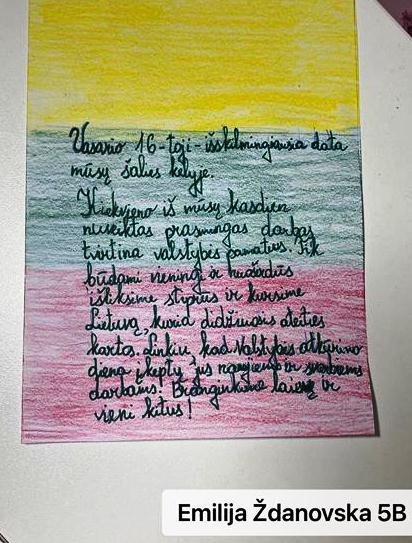 Vasario 16-toji-iškilmingiausia data
mūsų šalies kelyje.
Kiekvieno iš mūsų kasdien
nuveiktas prasmingas darbas
tvirtina valstybės pamatus. Tik
būdami vieningi ir nuoširdūs
išliksime stiprūs ir kursime
Lietuvą, kuria didžiuosis ateities
kartos. Linkiu, kad Valstybės atkūrimo
diena įkvėptų jus naujiems ir prasmingiems
darbams! Branginkime laisvę ir
vieni kitus!
Emilija Ždanovska 5B